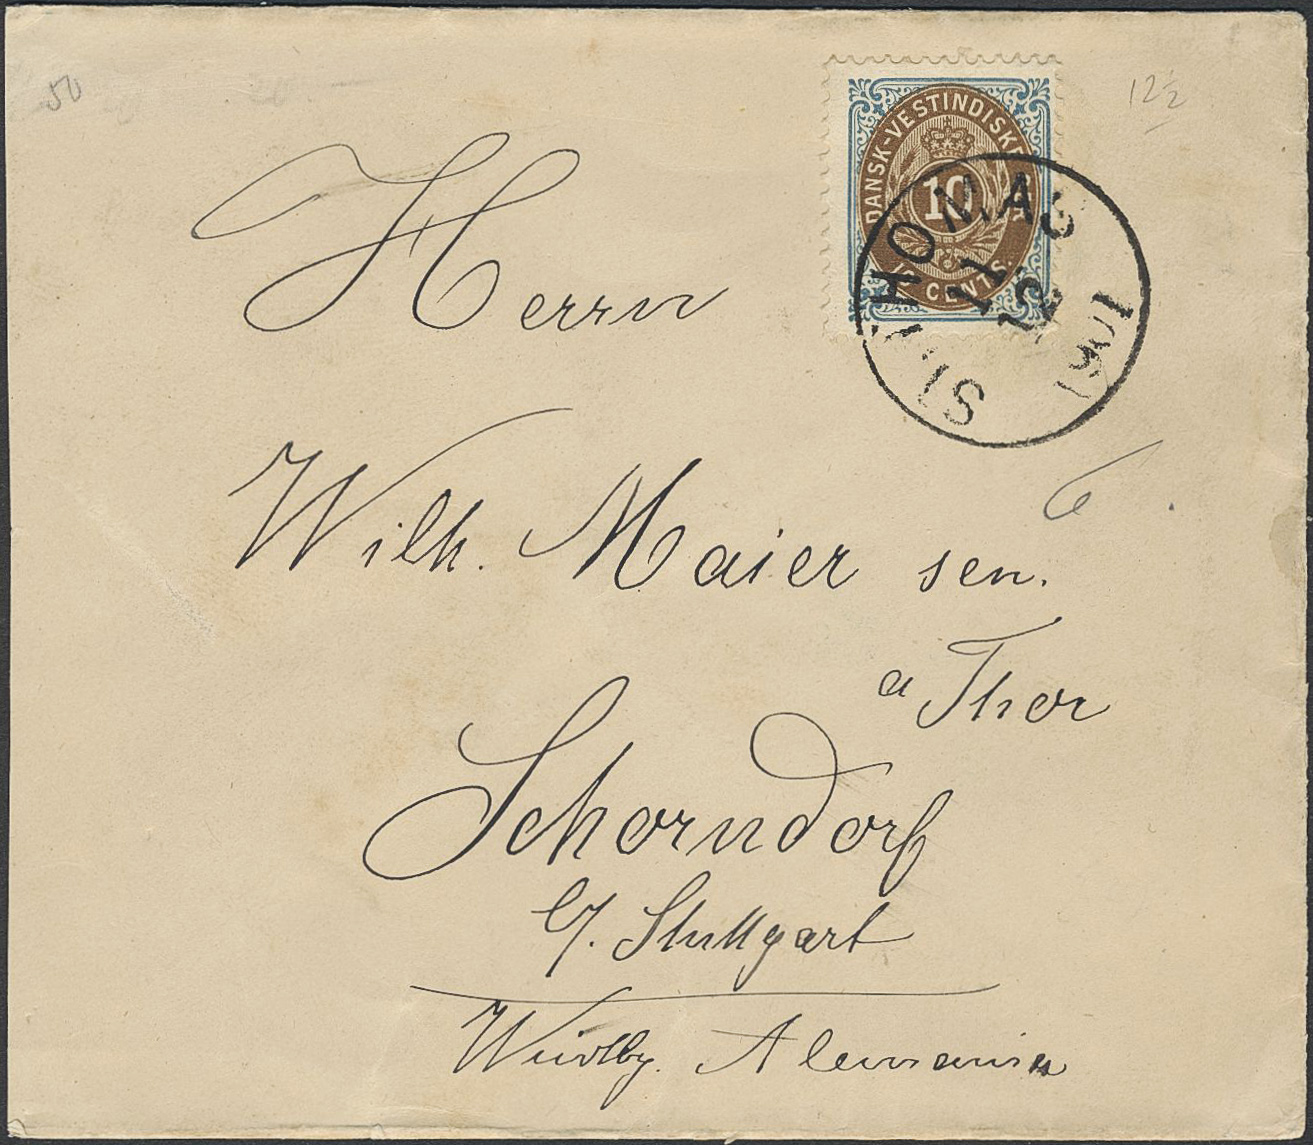 50
12½
DANSK-VESTINDISKE
10
10 CENTS.
ST. THOMAS
11
12
1901
6
Herrn
Wilh. Maier sen.
a Thor
Schorndorf
b/. Stuttgart
Württbg. Alemania